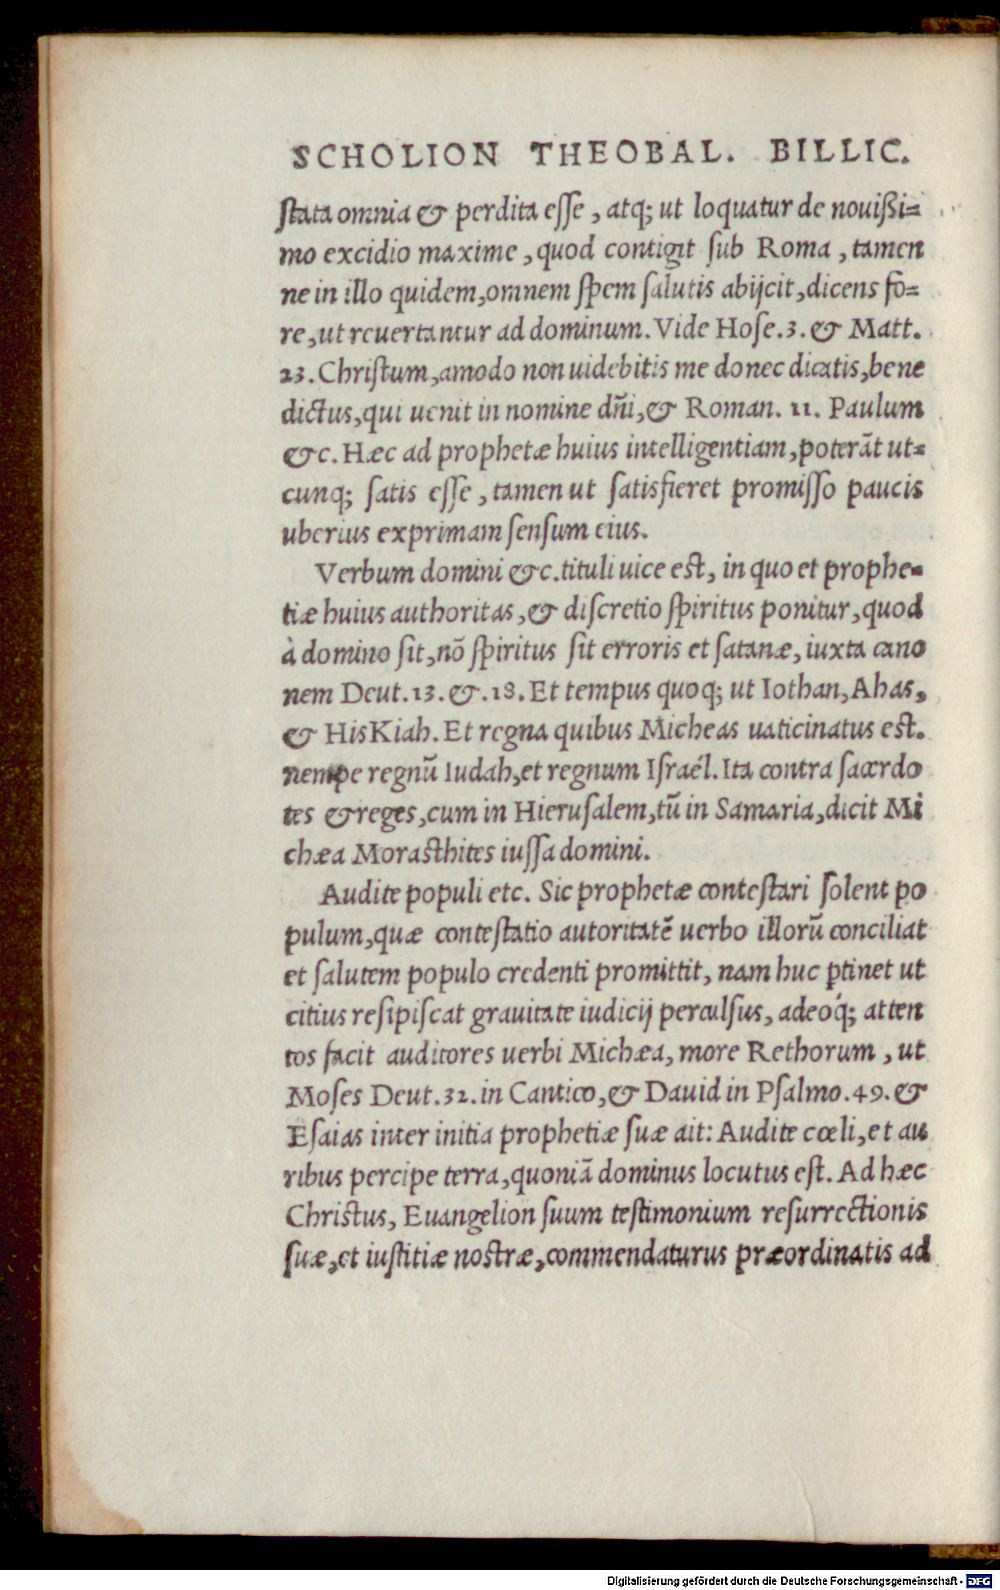 SCHOLION THEOBAL. BILLIC.
ſtata omnia & perdita eſſe, atq; ut loquatur de nouißi=
mo excidio maxime, quod contigit ſub Roma, tamen
ne in illo quidem, omnem ſpem ſalutis abijcit, dicens fo=
re, ut reuertantur ad dominum. Vide Hoſe. 3. & Matt.
23. Chriſtum, amodo non uidebitis me donec dicatis, bene
dictus, qui uenit in nomine dñi, & Roman. 11. Paulum
&c. Hæc ad prophetæ huius intelligentiam, poterãt ut=
cunq; ſatis eſſe, tamen ut ſatisfieret promiſſo paucis
uberius exprimam ſenſum eius.
Verbum domini &c. tituli uice est, in quo et prophe=
tiæ huius authoritas, & diſcretio ſpiritus ponitur, quod
à domino ſit, nõ ſpiritus ſit erroris et ſatanæ, iuxta cano
nem Deut. 13. &. 18. Et tempus quoq; ut Iothan, Ahas,
& HisKiah. Et regna quibus Micheas uaticinatus est.
nempe regnũ Iudah, et regnum Iſraél. Ita contra ſacerdo
tes & reges, cum in Hieruſalem, tũ in Samaria, dicit Mi
chæa Morasthites iuſſa domini.
Audite populi etc. Sic prophetæ conteſtari ſolent po
pulum, quæ conteſtatio autoritatẽ uerbo illorũ conciliat
et ſalutem populo credenti promittit, nam huc ꝑtinet ut
citius reſipiſcat grauitate iudicij perculſus, adeoq́; atten
tos facit auditores uerbi Michæa, more Rethorum, ut
Moſes Deut. 32. in Cantico, & Dauid in Pſalmo. 49. &
Eſaias inter initia prophetiæ ſuæ ait: Audite cœli, et au
ribus percipe terra, quoniã dominus locutus eſt. Ad hæc
Christus, Euangelion ſuum teſtimonium reſurrectionis
ſuæ, et iuſtitiæ nostræ, commendaturus præordinatis ad
Digitalisierung gefördert durch die Deutsche Forschungsgemeinschaft - DFG